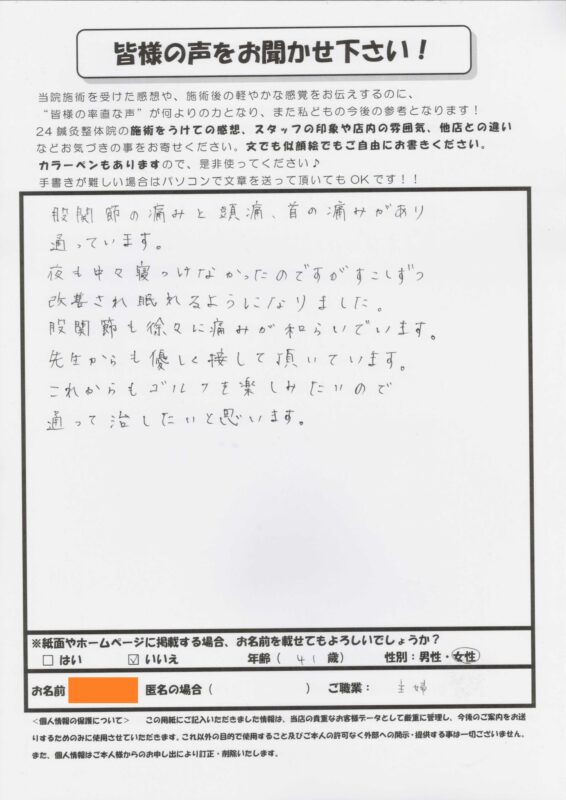 皆様の声をお聞かせ下さい！
当院施術を受けた感想や、施術後の軽やかな感覚をお伝えするのに、
“皆様の率直な声”が何よりの力となり、また私どもの今後の参考となります！
24鍼灸整体院の施術をうけての感想、スタッフの印象や店内の雰囲気、他店との違い
などお気づきの事をお寄せください。文でも似顔絵でもご自由にお書きください。
カラーペンもありますので、是非使ってください♪
手書きが難しい場合はパソコンで文章を送って頂いてもOKです！！
股関節の痛みと頭痛、首の痛みがあり
通っています。
夜も中々寝つけなかったのですがすこしずつ
改善され眠れるようになりました。
股関節も徐々に痛みが和らいでいます。
先生からも優しく接して頂いています。
これからもゴルフを楽しみたいので
通って治したいと思います。
※紙面やホームページに掲載する場合、お名前を載せてもよろしいでしょうか？
□ はい ☑ いいえ 年齢（ 41 歳） 性別：男性・女性
お名前 匿名の場合（ ） ご職業： 主婦
＜個人情報の保護について＞ この用紙にご記入いただきました情報は、当店の貴重なお客様データとして厳重に管理し、今後のご案内をお送
りするためのみに使用させていただきます。これ以外の目的で使用すること及びご本人の許可なく外部への開示・提供する事は一切ございません。
また、個人情報はご本人様からのお申し出により訂正・削除いたします。